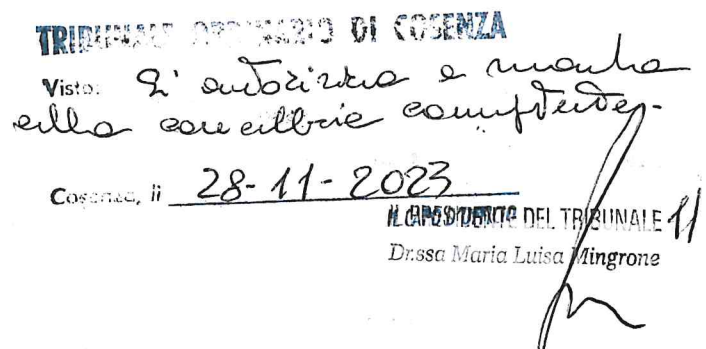 TRIBUNALE ORDINARIO DI COSENZA
Visto: Si autorizza e manda
alla cancelleria competente.
Cosenza, lì 28-11-2023
IL PRESIDENTE DEL TRIBUNALE
Dr.ssa Maria Luisa Mingrone